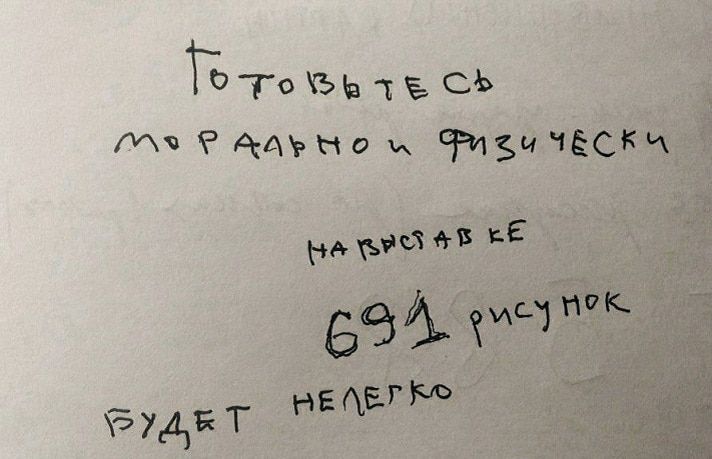 Готовьтесь
морально и физически
на выставке
691 рисунок
будет нелегко